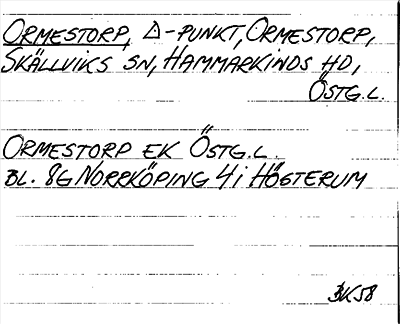 ORMESTORP, Δ-PUNKT, ORMESTORP,
SKÄLLVIKS SN, HAMMARKINDS HD,
ÖSTG.L.
ORMESTORP EK ÖSTG.L.
BL. 8G NORRKÖPING 4i HÖGTERUM
BK58